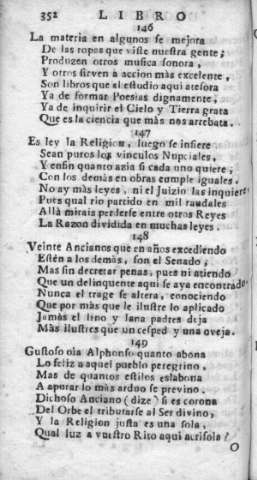 352 LIBRO
146
La materia en algunos se mejora
De las ropas que viste nuestra gente;
Producen otros musica sonora,
Y otros sirven à accion màs excelente,
Son libros que al estudio aqui atesora
Ya de formar Poesias dignamente,
Ya de inquirir el Cielo y Tierra grata
Que es la ciencia que màs nos arrebata.
147
Es ley la Religion, luego se infiere
Sean puros los vinculos Nupciales,
Y enfin quanto azia si cada uno quiere,
Con los demàs en obras cumple iguales.
No ay màs leyes, ni el Juizio las inquiere
Pues qual rio partido en mil raudales
Allà mirais perderse entre otros Reyes
La Razon dividida en muchas leyes.
148
Veinte Ancianos que en años excediendo
Estén a los demàs, son el Senado,
Mas sin decretar penas, pues ni atiendo
Que un delinquente aqui se aya encontrado.
Nunca el trage se altera, conociendo
Que por màs que le ilustre lo aplicado
Jamàs el lino y lana padres deja
Màs ilustres que un cesped y una oveja.
149
Gustoso oia Alphonso quanto abona
Lo feliz a aquel pueblo peregrino,
Mas de quantos estilos eslabona
A apurar lo màs arduo se previno.
Dichoso Anciano (dize) si es corona
Del Orbe el tributarse al Ser divino,
Y la Religion justa es una sola,
Qual luz a vuestro Rito aqui acrisola?
O